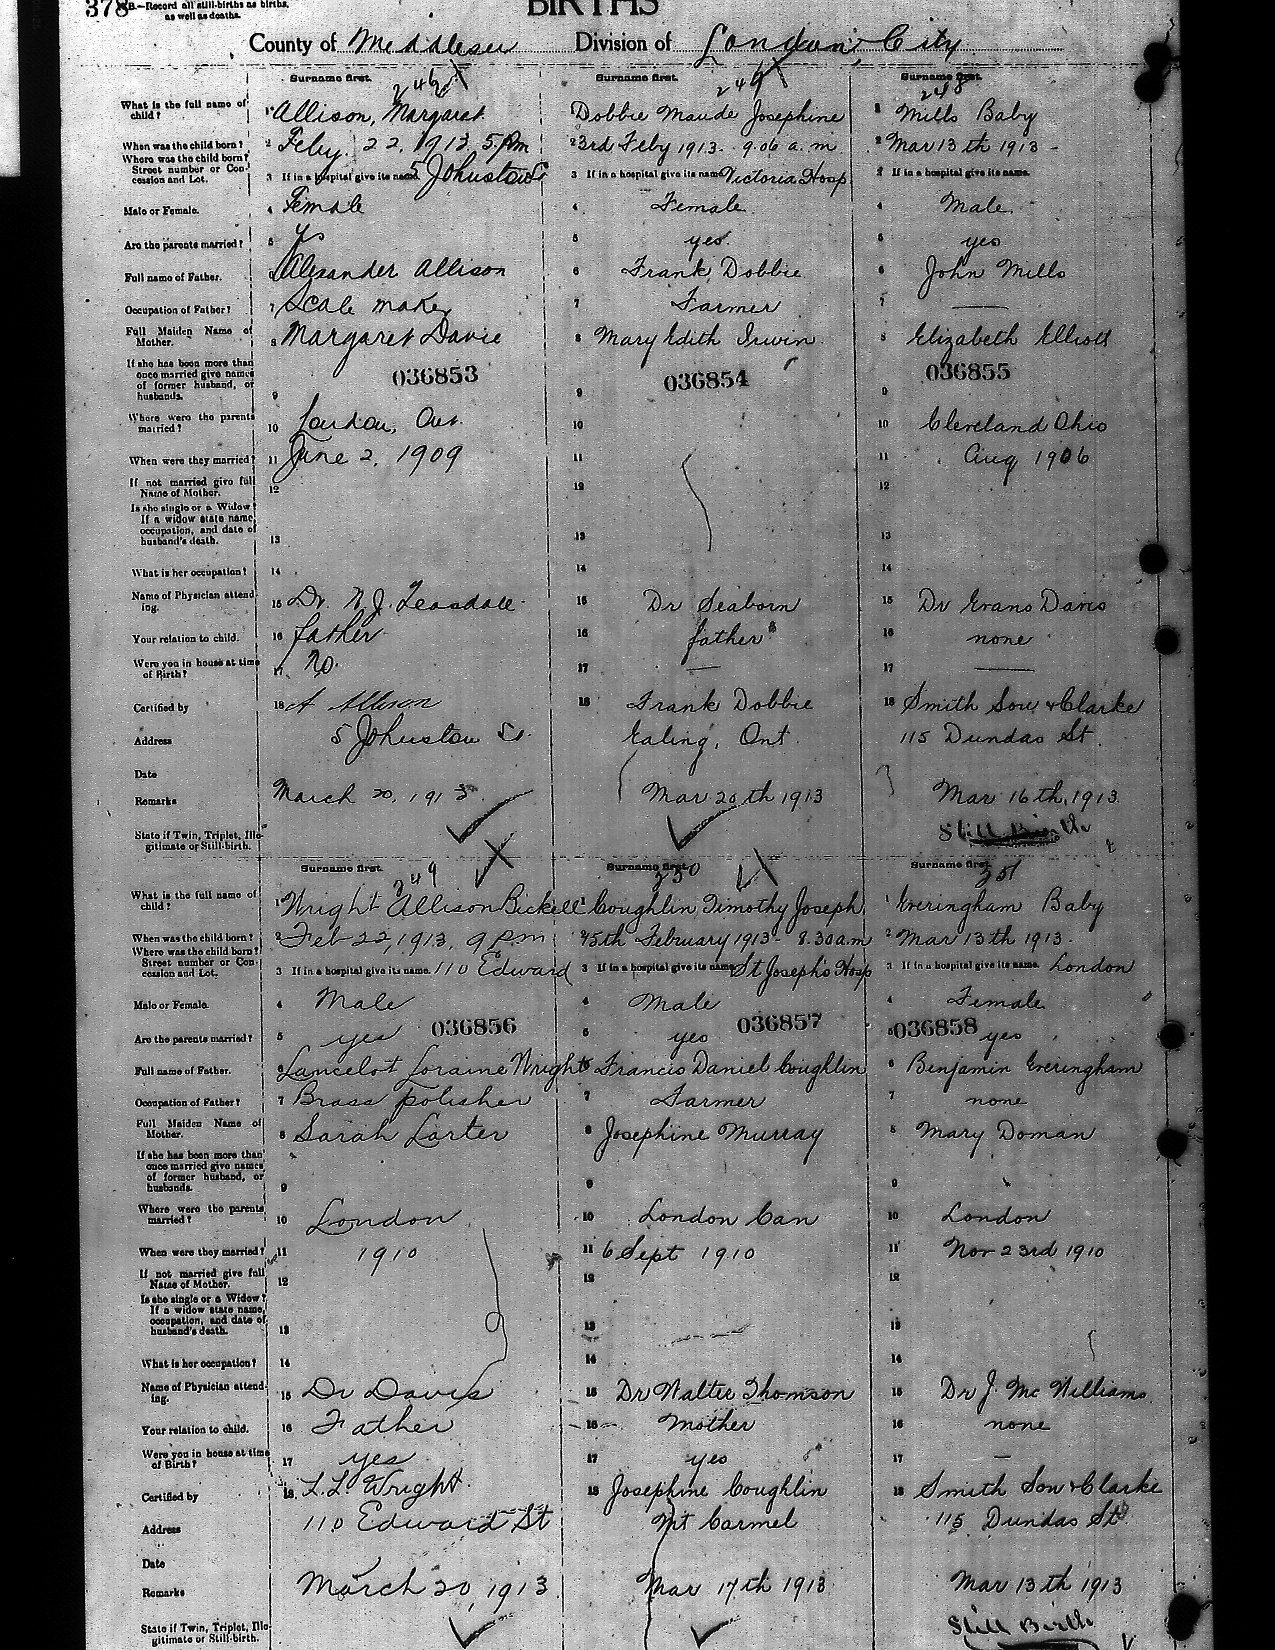 378
B.—Record all still-births as births,
as well as deaths.
BIRTHS
County of Middlesex Division of London City
Surname first. Surname first. Surname first.
246 247 248
What is the full name of child? 1 Allison, Margaret 1 Dobbie Maude Josephine 1 Mills Baby
When was the child born? 2 Feby. 22, 1913, 5 Pm 2 23rd Feby 1913 - 9.06 a.m 2 Mar 13th 1913 -
Where was the child born? Street number or Concession and Lot. 3 If in a hospital give its name. 5 Johnston St 3 If in a hospital give its name Victoria Hosp 3 If in a hospital give its name.
Male or Female. 4 Female 4 Female 4 Male
Are the parents married? 5 yes 5 yes 5 yes
Full name of Father. 6 Alexander Allison 6 Frank Dobbie 6 John Mills
Occupation of Father? 7 Scale maker 7 Farmer 7 —
Full Maiden Name of Mother. 8 Margaret Davie 8 Mary Edith Irwin 8 Elizabeth Elliott
If she has been more than once married give names of former husband, or husbands. 9 036853 9 036854 9 036855
Where were the parents married? 10 London, Ont. 10 10 Cleveland Ohio
When were they married? 11 June 2, 1909 11 11 Aug 1906
If not married give full Name of Mother. 12 12 12
Is she single or a Widow? If a widow state name, occupation, and date of husband's death. 13 13 13
What is her occupation? 14 14 14
Name of Physician attending. 15 Dr. W. J. Teasdale 15 Dr Seaborn 15 Dr Evans Davis
Your relation to child. 16 father 16 father 16 none
Were you in house at time of Birth? 17 No. 17 — 17 —
Certified by 18 A Allison 18 Frank Dobbie 18 Smith Son & Clarke
Address 5 Johnston St. Ealing, Ont. 115 Dundas St.
Date
Remarks March 20, 1913 Mar 20th 1913 Mar 16th, 1913
State if Twin, Triplet, Illegitimate or Still-birth. Still Birth
Surname first. Surname first. Surname first.
249 250 251
What is the full name of child? 1 Wright Allison Bickell 1 Coughlin Timothy Joseph 1 Everingham Baby
When was the child born? 2 Feb 22, 1913, 9 pm 2 25th February 1913 - 8.30 a.m 2 Mar 13th 1913.
Where was the child born? Street number or Concession and Lot. 3 If in a hospital give its name. 110 Edward 3 If in a hospital give its name St Joseph's Hosp 3 If in a hospital give its name. London
Male or Female. 4 Male 4 Male 4 Female
Are the parents married? 5 yes 036856 5 yes 036857 5 036858 yes
Full name of Father. 6 Lancelot Loraine Wright 6 Francis Daniel Coughlin 6 Benjamin Everingham
Occupation of Father? 7 Brass polisher 7 Farmer 7 none
Full Maiden Name of Mother. 8 Sarah Carter 8 Josephine Murray 8 Mary Doman
If she has been more than once married give names of former husband, or husbands. 9 9 9
Where were the parents married? 10 London 10 London Can 10 London
When were they married? 11 1910 11 6 Sept 1910 11 Nov 23rd 1910
If not married give full Name of Mother. 12 12 12
Is she single or a Widow? If a widow state name, occupation, and date of husband's death. 13 13 13
What is her occupation? 14 14 14
Name of Physician attending. 15 Dr Davis 15 Dr Walter Thomson 15 Dr J. McWilliams
Your relation to child. 16 Father 16 Mother 16 none
Were you in house at time of Birth? 17 yes 17 yes 17 —
Certified by 18 L. L. Wright. 18 Josephine Coughlin 18 Smith Son & Clarke
Address 110 Edward St Mt Carmel 115 Dundas St
Date
Remarks March 20, 1913 Mar 17th 1913 Mar 13th 1913
State if Twin, Triplet, Illegitimate or Still-birth. Still Birth